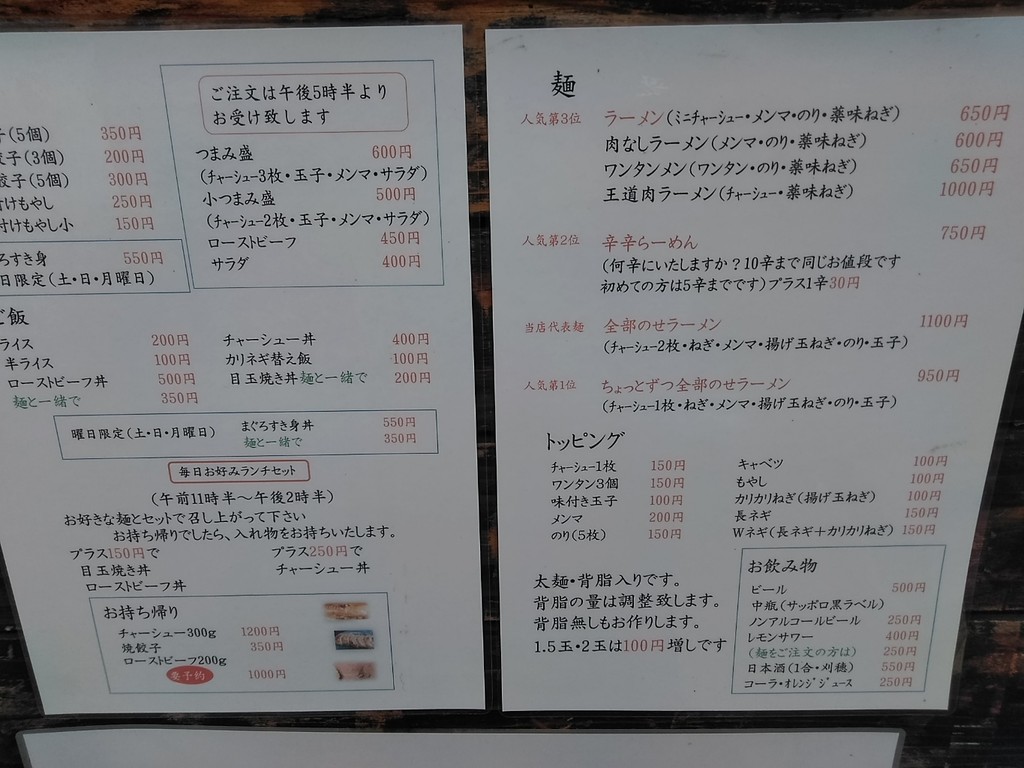 子(5個) 350円
餃子(3個) 200円
餃子(5個) 300円
付けもやし 250円
付けもやし小 150円
ろすき身 550円
日限定(土・日・月曜日)
ご注文は午後5時半より
お受け致します
つまみ盛 600円
(チャーシュー3枚・玉子・メンマ・サラダ)
小つまみ盛 500円
(チャーシュー2枚・玉子・メンマ・サラダ)
ローストビーフ 450円
サラダ 400円
ご飯
ライス 200円
半ライス 100円
ローストビーフ丼 500円
麺と一緒で 350円
チャーシュー丼 400円
カリネギ替え飯 100円
目玉焼き丼麺と一緒で 200円
曜日限定(土・日・月曜日) まぐろすき身丼 550円
麺と一緒で 350円
毎日お好みランチセット
(午前11時半～午後2時半)
お好きな麺とセットで召し上がって下さい
お持ち帰りでしたら、入れ物をお持ちいたします。
プラス150円で
目玉焼き丼
ローストビーフ丼
プラス250円で
チャーシュー丼
お持ち帰り
チャーシュー300g 1200円
焼餃子 350円
ローストビーフ200g
要予約 1000円
麺
人気第3位 ラーメン(ミニチャーシュー・メンマ・のり・薬味ねぎ) 650円
肉なしラーメン(メンマ・のり・薬味ねぎ) 600円
ワンタンメン(ワンタン・のり・薬味ねぎ) 650円
王道肉ラーメン(チャーシュー・薬味ねぎ) 1000円
人気第2位 辛辛らーめん 750円
(何辛にいたしますか?10辛まで同じお値段です
初めての方は5辛までです)プラス1辛30円
当店代表麺 全部のせラーメン 1100円
(チャーシュー2枚・ねぎ・メンマ・揚げ玉ねぎ・のり・玉子)
人気第1位 ちょっとずつ全部のせラーメン 950円
(チャーシュー1枚・ねぎ・メンマ・揚げ玉ねぎ・のり・玉子)
トッピング
チャーシュー1枚 150円
ワンタン3個 150円
味付き玉子 100円
メンマ 200円
のり(5枚) 150円
キャベツ 100円
もやし 100円
カリカリねぎ(揚げ玉ねぎ) 100円
長ネギ 150円
Wネギ(長ネギ+カリカリねぎ) 150円
太麺・背脂入りです。
背脂の量は調整致します。
背脂無しもお作りします。
1.5玉・2玉は100円増しです
お飲み物
ビール 500円
中瓶(サッポロ黒ラベル)
ノンアルコールビール 250円
レモンサワー 400円
(麺をご注文の方は) 250円
日本酒(1合・刈穂) 550円
コーラ・オレンジジュース 250円